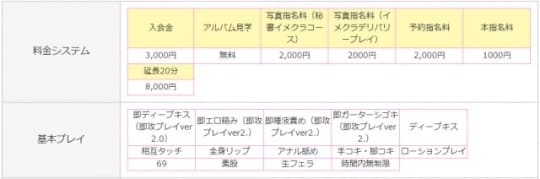 料金システム
入会金
アルバム見学
写真指名料（秘
書イメクラコー
ス）
写真指名料（イ
メクラデリバリ
ープレイ）
予約指名料
本指名料
3,000円
無料
2,000円
2000円
2,000円
1000円
延長20分
8,000円
基本プレイ
即ディープキス
（即攻プレイver
2.0）
即エロ絡み（即攻
プレイver2.）
即唾液責め（即攻
プレイver2.）
即ガーターシゴキ
（即攻プレイver
2.）
ディープキス
相互タッチ
全身リップ
アナル舐め
手コキ・脚コキ
ローションプレイ
69
素股
生フェラ
時間内無制限